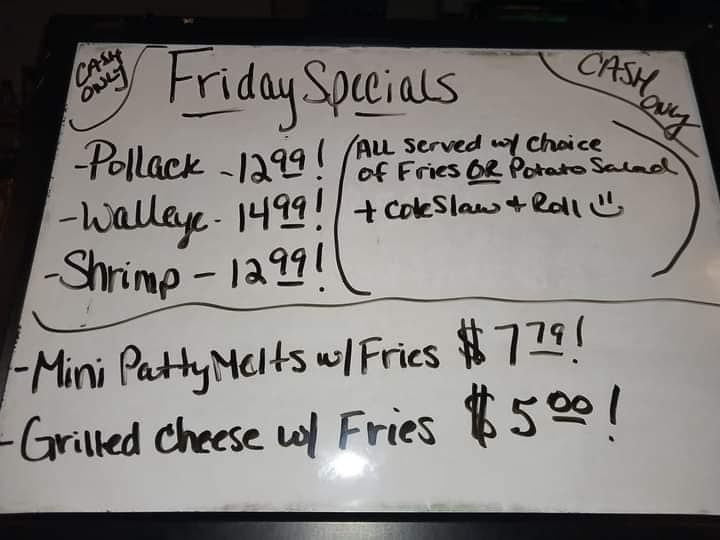 CASH ONLY
Friday Specials
CASH ONLY
-Pollack - 12.99!
-Walleye - 14.99!
-Shrimp - 12.99!
(All served w/ choice
of Fries OR Potato Salad
+ ColeSlaw + Roll
-Mini Patty Melts w/ Fries $7.79!
-Grilled cheese w/ Fries $5.00!